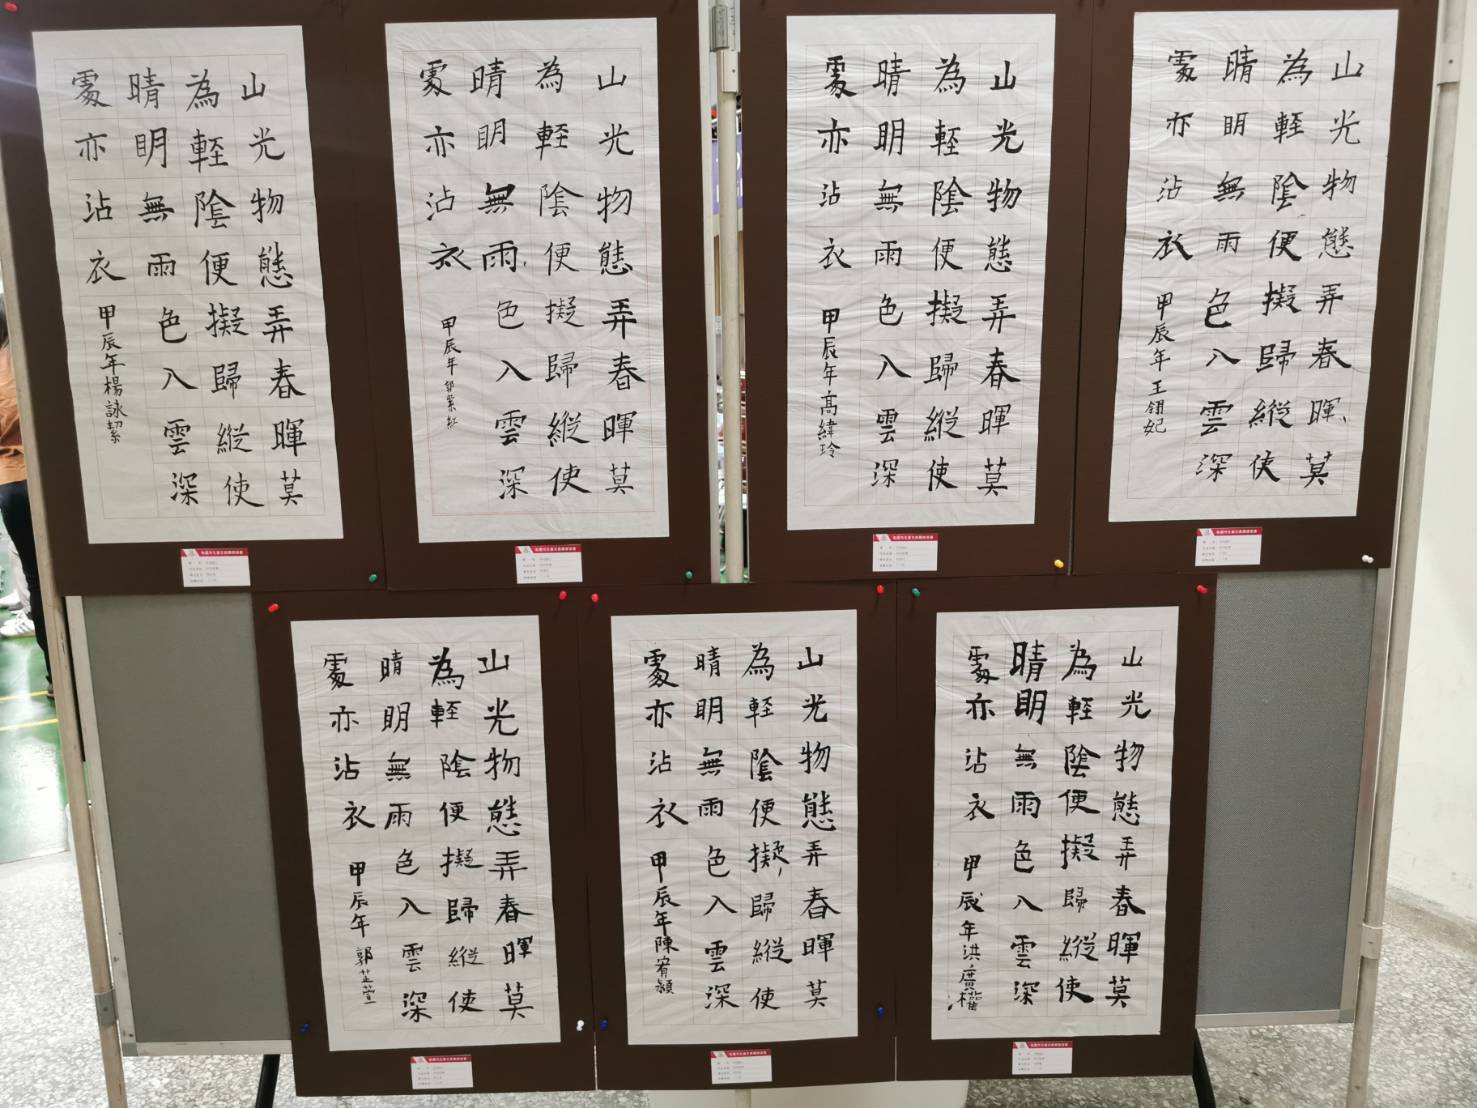 山光物態弄春暉莫
為輕陰便擬歸縱使
晴明無雨色入雲深
處亦沾衣 甲辰年楊詠絜
山光物態弄春暉莫
為輕陰便擬歸縱使
晴明無雨色入雲深
處亦沾衣 甲辰年
山光物態弄春暉莫
為輕陰便擬歸縱使
晴明無雨色入雲深
處亦沾衣 甲辰年高緯玲
山光物態弄春暉莫
為輕陰便擬歸縱使
晴明無雨色入雲深
處亦沾衣 甲辰年王翎妃
山光物態弄春暉莫
為輕陰便擬歸縱使
晴明無雨色入雲深
處亦沾衣 甲辰年郭芷萱
山光物態弄春暉莫
為輕陰便擬歸縱使
晴明無雨色入雲深
處亦沾衣 甲辰年陳宥穎
山光物態弄春暉莫
為輕陰便擬歸縱使
晴明無雨色入雲深
處亦沾衣 甲辰年洪廣權